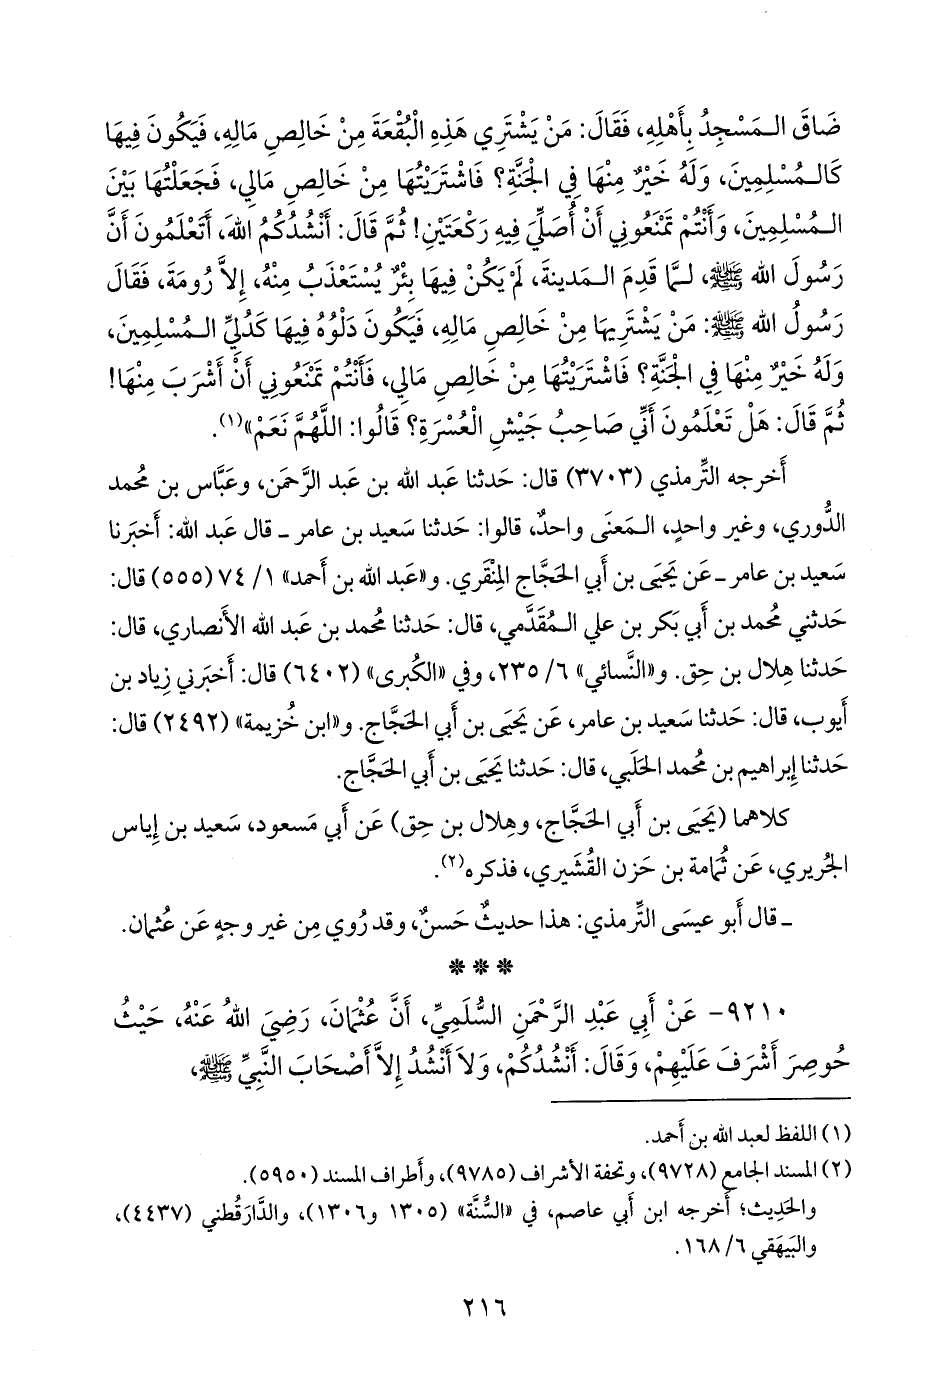 ضَاقَ الـمَسْجِدُ بِأَهْلِهِ، فَقَالَ: مَنْ يَشْتَرِي هَذِهِ الْبُقْعَةَ مِنْ خَالِصِ مَالِهِ، فَيَكُونَ فِيهَا
كَالـمُسْلِمِينَ، وَلَهُ خَيْرٌ مِنْهَا فِي الْجَنَّةِ؟ فَاشْتَرَيْتُهَا مِنْ خَالِصِ مَالِي، فَجَعَلْتُهَا بَيْنَ
الـمُسْلِمِينَ، وَأَنْتُمْ تَمْنَعُونِي أَنْ أُصَلِّيَ فِيهِ رَكْعَتَيْنِ! ثُمَّ قَالَ: أَنْشُدُكُمُ اللهَ، أَتَعْلَمُونَ أَنَّ
رَسُولَ الله ﷺ، لـمَّا قَدِمَ الـمَدينةَ، لَمْ يَكُنْ فِيهَا بِئْرٌ يُسْتَعْذَبُ مِنْهُ، إِلاَّ رُومَةَ، فَقَالَ
رَسُولُ الله ﷺ: مَنْ يَشْتَرِيهَا مِنْ خَالِصِ مَالِهِ، فَيَكُونَ دَلْوُهُ فِيهَا كَدُلِيِّ الـمُسْلِمِينَ،
وَلَهُ خَيْرٌ مِنْهَا فِي الْجَنَّةِ؟ فَاشْتَرَيْتُهَا مِنْ خَالِصِ مَالِي، فَأَنْتُمْ تَمْنَعُونِي أَنْ أَشْرَبَ مِنْهَا!
ثُمَّ قَالَ: هَلْ تَعْلَمُونَ أَنِّي صَاحِبُ جَيْشِ الْعُسْرَةِ؟ قَالُوا: اللَّهُمَّ نَعَمْ»(١).
أَخرجه التِّرمذي (٣٧٠٣) قال: حَدثنا عَبد الله بن عَبد الرَّحمَن، وعَبَّاس بن مُحمد
الدُّوري، وغير واحدٍ، الـمَعنَى واحدٌ، قالوا: حَدثنا سَعيد بن عامر ـ قال عَبد الله: أَخبَرنا
سَعيد بن عامر ـ عَن يَحيَى بن أَبي الحَجَّاج المِنْقَري. و«عَبد الله بن أَحمد» ١/ ٧٤ (٥٥٥) قال:
حَدثني مُحمد بن أَبي بَكر بن علي الـمُقَدَّمي، قال: حَدثنا مُحمد بن عَبد الله الأَنصاري، قال:
حَدثنا هِلال بن حِق. و«النَّسائي» ٦/ ٢٣٥، وفي «الكُبرى» (٦٤٠٢) قال: أَخبَرني زِياد بن
أَيوب، قال: حَدثنا سَعيد بن عامر، عَن يَحيَى بن أَبي الحَجَّاج. و«ابن خُزيمة» (٢٤٩٢) قال:
حَدثنا إِبراهيم بن مُحمد الحَلَبي، قال: حَدثنا يَحيَى بن أَبي الحَجَّاج.
كلاهما (يَحيَى بن أَبي الحَجَّاج، وهِلال بن حِق) عَن أَبي مَسعود، سَعيد بن إِياس
الجُريري، عَن ثُمامة بن حَزن القُشَيري، فذكره(٢).
ـ قال أَبو عيسَى التِّرمذي: هذا حديثٌ حَسنٌ، وقد رُوي مِن غير وجهٍ عَن عُثمان.
* * *
٩٢١٠- عَنْ أَبِي عَبْدِ الرَّحْمَنِ السُّلَمِيِّ، أَنَّ عُثْمَانَ، رَضِيَ اللهُ عَنْهُ، حَيْثُ
حُوصِرَ أَشْرَفَ عَلَيْهِمْ، وَقَالَ: أَنْشُدُكُمْ، وَلاَ أَنْشُدُ إِلاَّ أَصْحَابَ النَّبِيِّ ﷺ،
(١) اللفظ لعبد الله بن أَحمد.
(٢) المسند الجامع (٩٧٢٨)، وتحفة الأشراف (٩٧٨٥)، وأَطراف المسند (٥٩٥٠).
والحَدِيث؛ أَخرجه ابن أبي عاصم، في «السُّنَّة» (١٣٠٥ و١٣٠٦)، والدَّارَقُطني (٤٤٣٧)،
والبَيهَقي ٦/ ١٦٨.
٢١٦